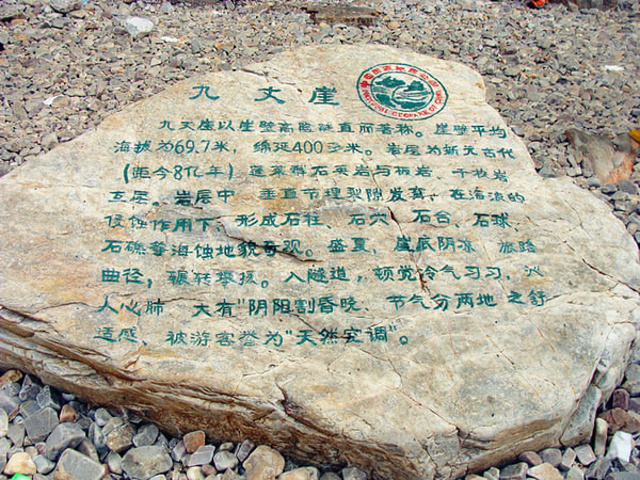 九丈崖
NATIONAL GEOPARK OF CHINA
九丈崖以崖壁高险陡直而著称。崖壁平均
海拔为69.7米，绵延400多米。岩层为新元古代
(距今8亿年)蓬莱群石英岩与板岩、千枚岩
互层。岩层中 垂直节理裂隙发育，在海浪的
侵蚀作用下，形成石柱、石穴、石台、石球、
石礁等海蚀地貌奇观。盛夏，崖底阴凉 旅路
曲径，辗转攀援。入隧道，顿觉冷气习习，沁
人心肺 大有"阴阳割昏晓、节气分两地之舒
适感、被游客誉为"天然空调"。